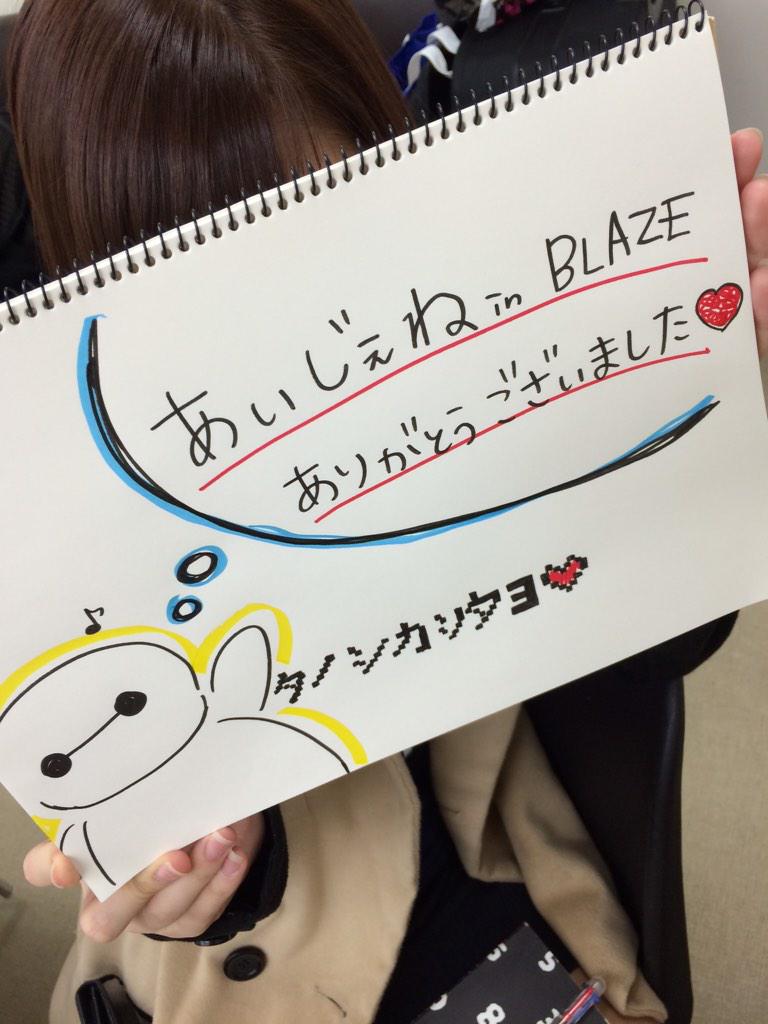 あいじぇね in BLAZE
ありがとうございました
タノシカッタヨ
S
8